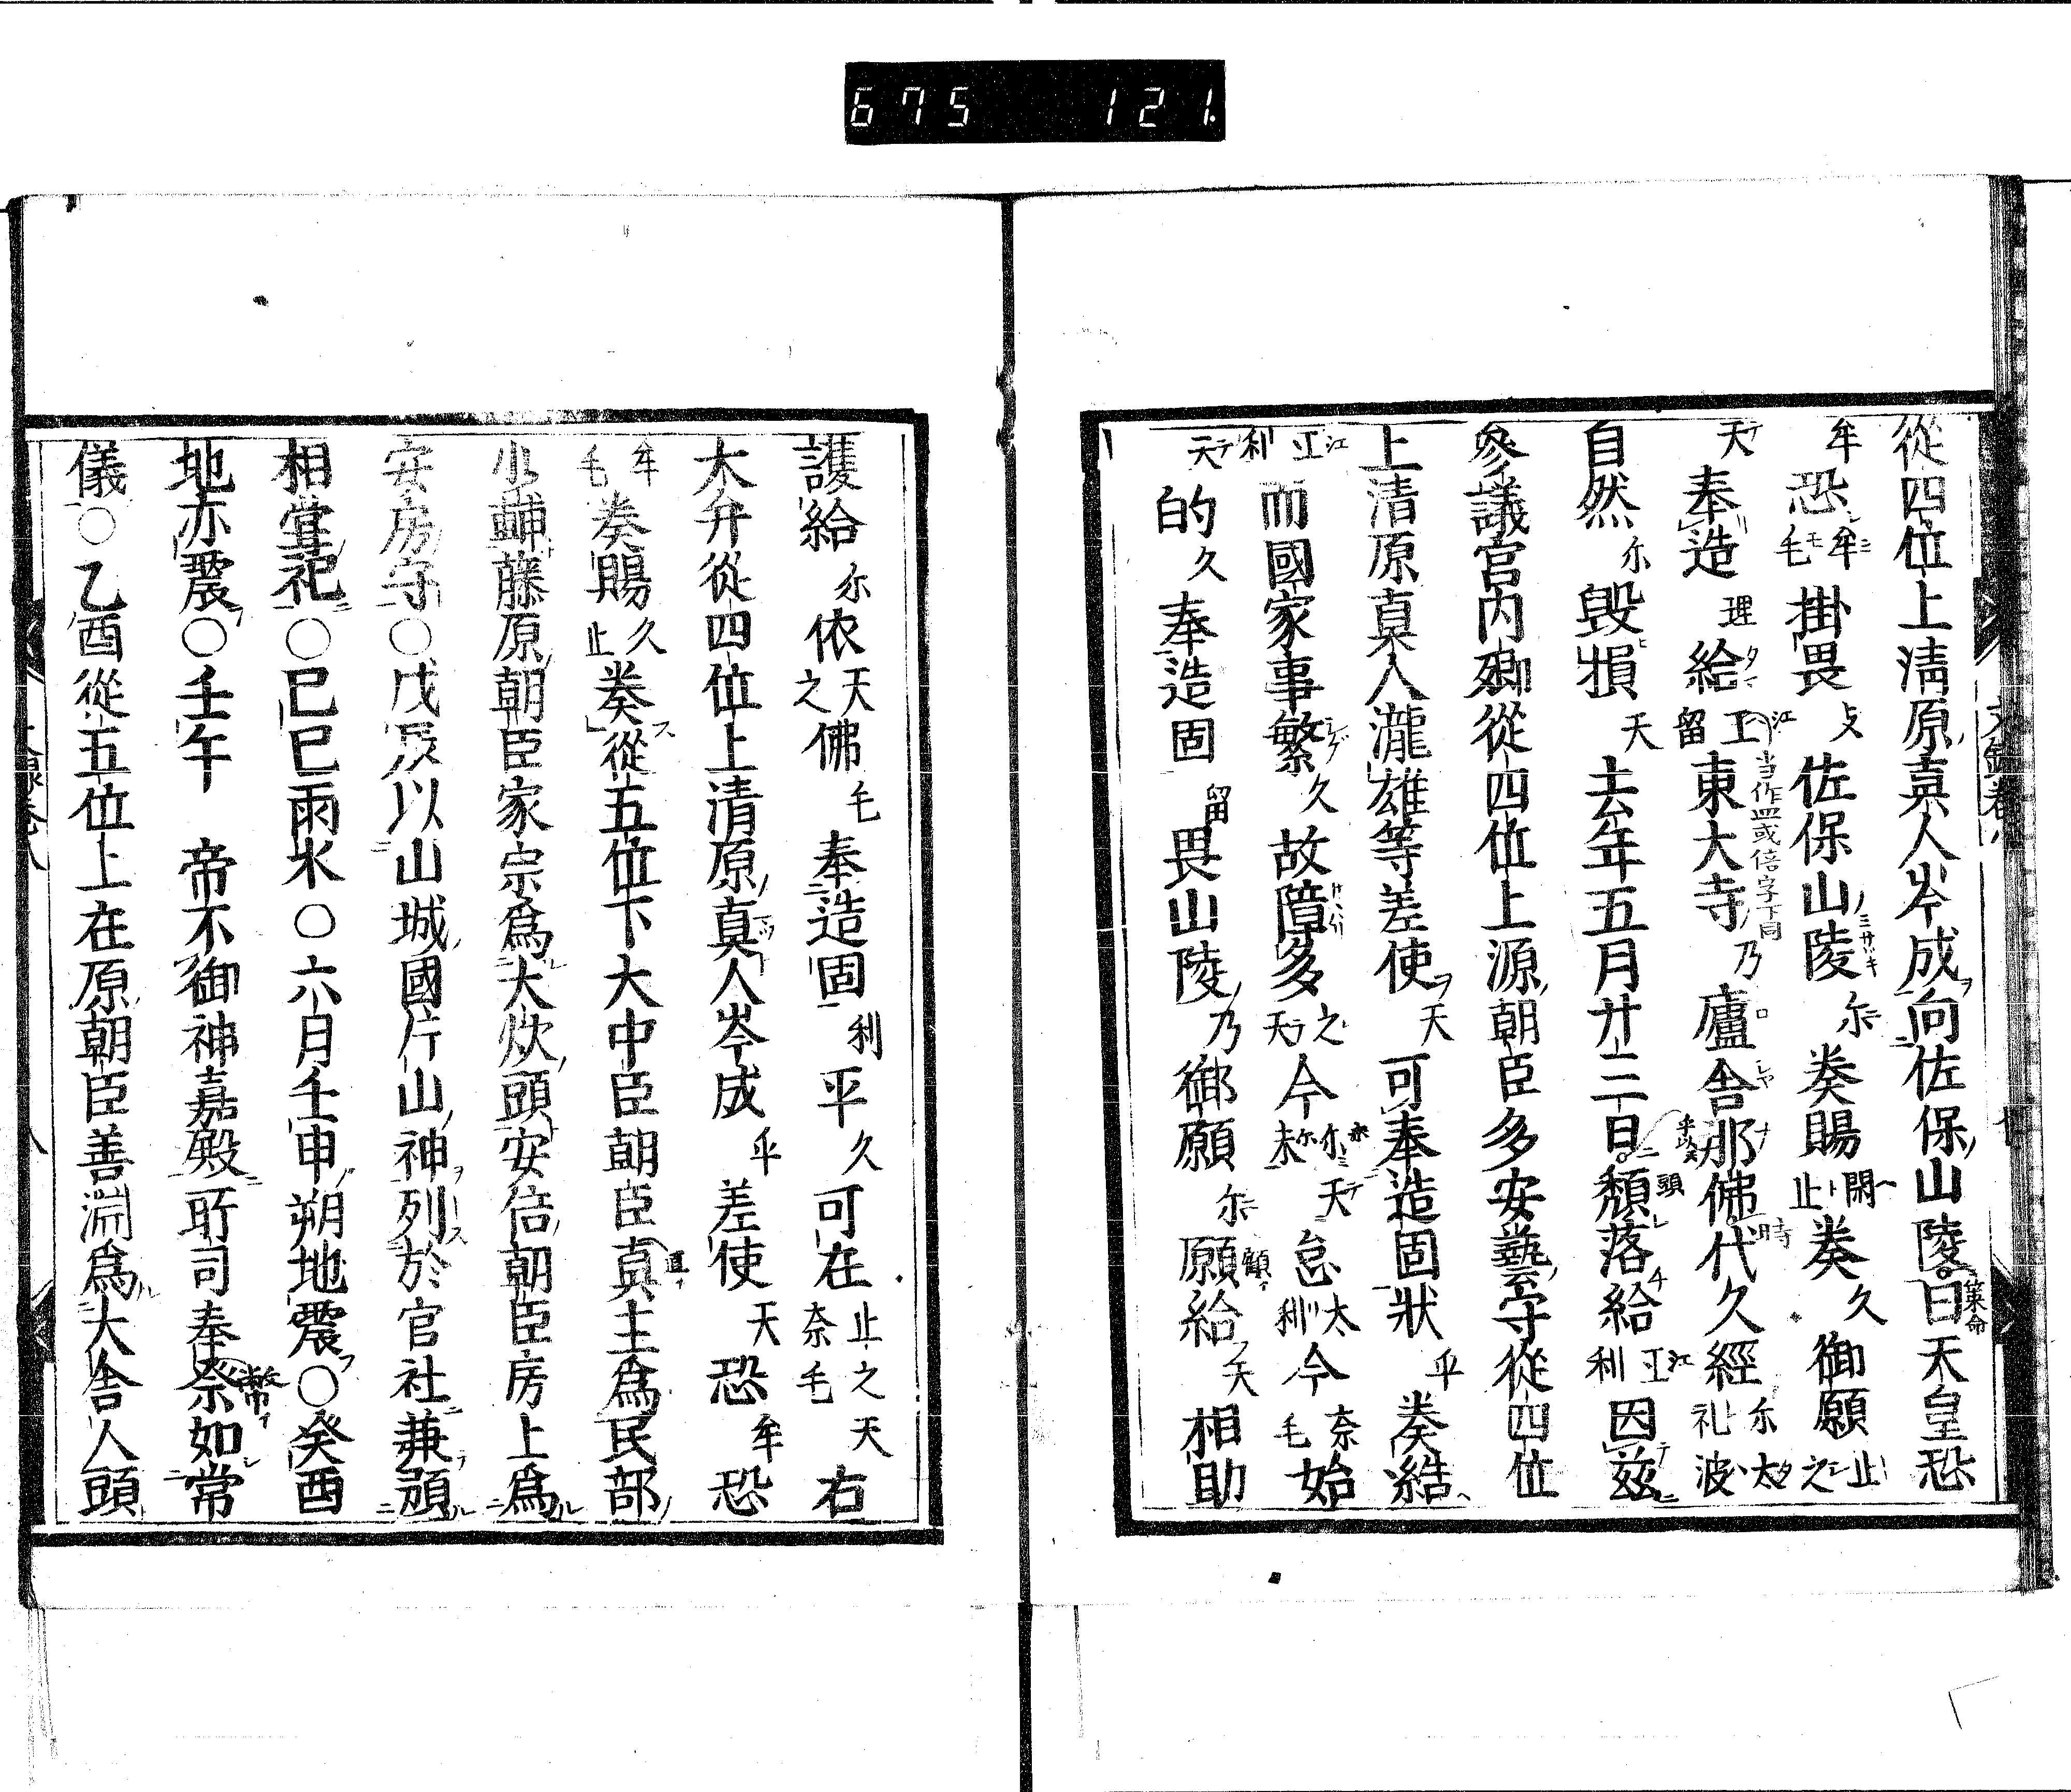 675 121.
從四位上淸原眞人岑成向佐保山陵曰天皇恐
牟恐牟毛掛畏支佐保山陵尓奏賜閇止奏久御願止之
天奉造理給江留東大寺乃廬舎那佛代久經尓太礼波
自然尓毀損天去年五月廿三日頽落給江利因玆
參議宮內卿從四位上源朝臣多安藝守從四位
上清原眞人瀧雄等差使天可奉造固狀乎奏結
江利而國家事繁久故障多之天今尓未尓天怠太利今奈毛始
天的久奉造固留畏山陵乃御願尓願給天相助
護給尓依天之佛毛奉造固利平久可在止之奈毛天右
大弁從四位上清原眞人岑成乎差使天恐牟恐
牟毛奏賜久止奏從五位下大中臣朝臣眞主爲民部
少輔藤原朝臣家宗爲大炊頭安倍朝臣房上爲
安房守○戊辰以山城國片山神列於官社兼預
相嘗祀○己巳雨氷○六月壬申朔地震○癸酉
地亦震○壬午 帝不御神嘉殿所司奉祭如常
儀○乙酉從五位上在原朝臣善淵爲大舎人頭